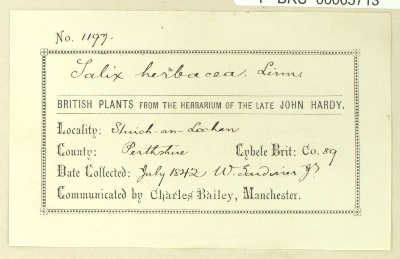 P BRU 00005713
No. 1197.
Salix herbacea. Linn.
BRITISH PLANTS FROM THE HERBARIUM OF THE LATE JOHN HARDY.
Locality: Stuich-an-Lochan
County: Perthshire Cybele Brit: Co. 89
Date Collected: July 1842 W. Gardiner Jr
Communicated by Charles Bailey, Manchester.